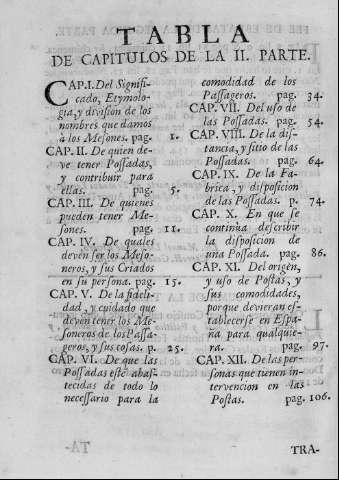 TABLA
DE CAPITULOS DE LA II. PARTE.
CAP.I. Del Signifi-
cado, Etymolo-
gia, y división de los
nombres que damos
à los Mesones. pag. 1.
CAP. II. De quien de-
ve tener Possadas,
y contribuir para
ellas. pag. 5.
CAP. III. De quienes
pueden tener Me-
sones. pag. 11.
CAP. IV. De quales
devèn ser los Meso-
neros, y sus Criados
en su persona. pag. 15.
CAP. V. De la fideli-
dad, y cuidado que
devèn tener los Me-
soneros de los Passa-
geros, y sus cosas. p. 25.
CAP. VI. De que las
Possadas estè abas-
tecidas de todo lo
necessario para la
comodidad de los
Passageros. pag. 34.
CAP. VII. Del uso de
las Possadas. pag. 54.
CAP. VIII. De la dis-
tancia, y sitio de las
Possadas. pag. 64.
CAP. IX. De la Fa-
brica, y disposicion
de las Possadas. p. 74.
CAP. X. En que se
continùa describir
la disposicion de
una Possada. pag. 86.
CAP. XI. Del origen,
y uso de Postas, y
sus comodidades,
porque devieran es-
tablecerse en Espa-
ña para qualquie-
ra. pag. 97.
CAP. XII. De las per-
sonas que tienen in-
tervencion en las
Postas. pag. 106.
TRA-